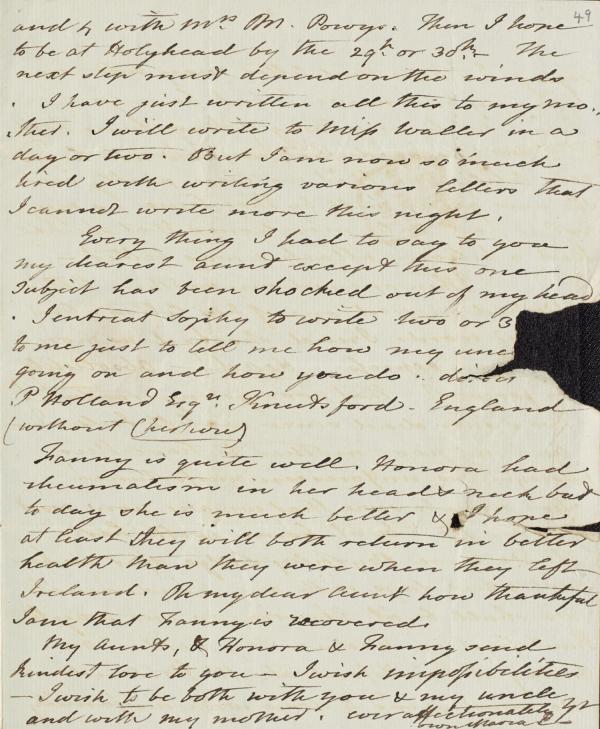 49
and & with Mrs M. Powys. Then I hope
to be at Holyhead by the 29th or 30th - The
next step must depend on the winds
. I have just written all this to my mo.
ther. I will write to Miss Waller in a
day or two. But I am now so much
tired with writing various letters that
I cannot write more this night.
Every thing I had to say to you
my dearest aunt except this one
subject has been shocked out of my head
. I entreat Sophy to write two or 3
to me just to tell me how my unc
going on and how you do.
P Holland Esqr. Knutsford - England
(without Cheshire)
Fanny is quite well. Honora had
rheumatism in her head & neck but
to day she is much better & I hope
at least they will both return in better
health than they were when they left
Ireland. Oh my dear Aunt how thankful
I am that Fanny is recovered.
My Aunts, & Honora & Fanny send
kindest love to you - I wish impossibilities
- I wish to be both with you & my uncle
and with my mother. ever affectionately yr
own Maria E -